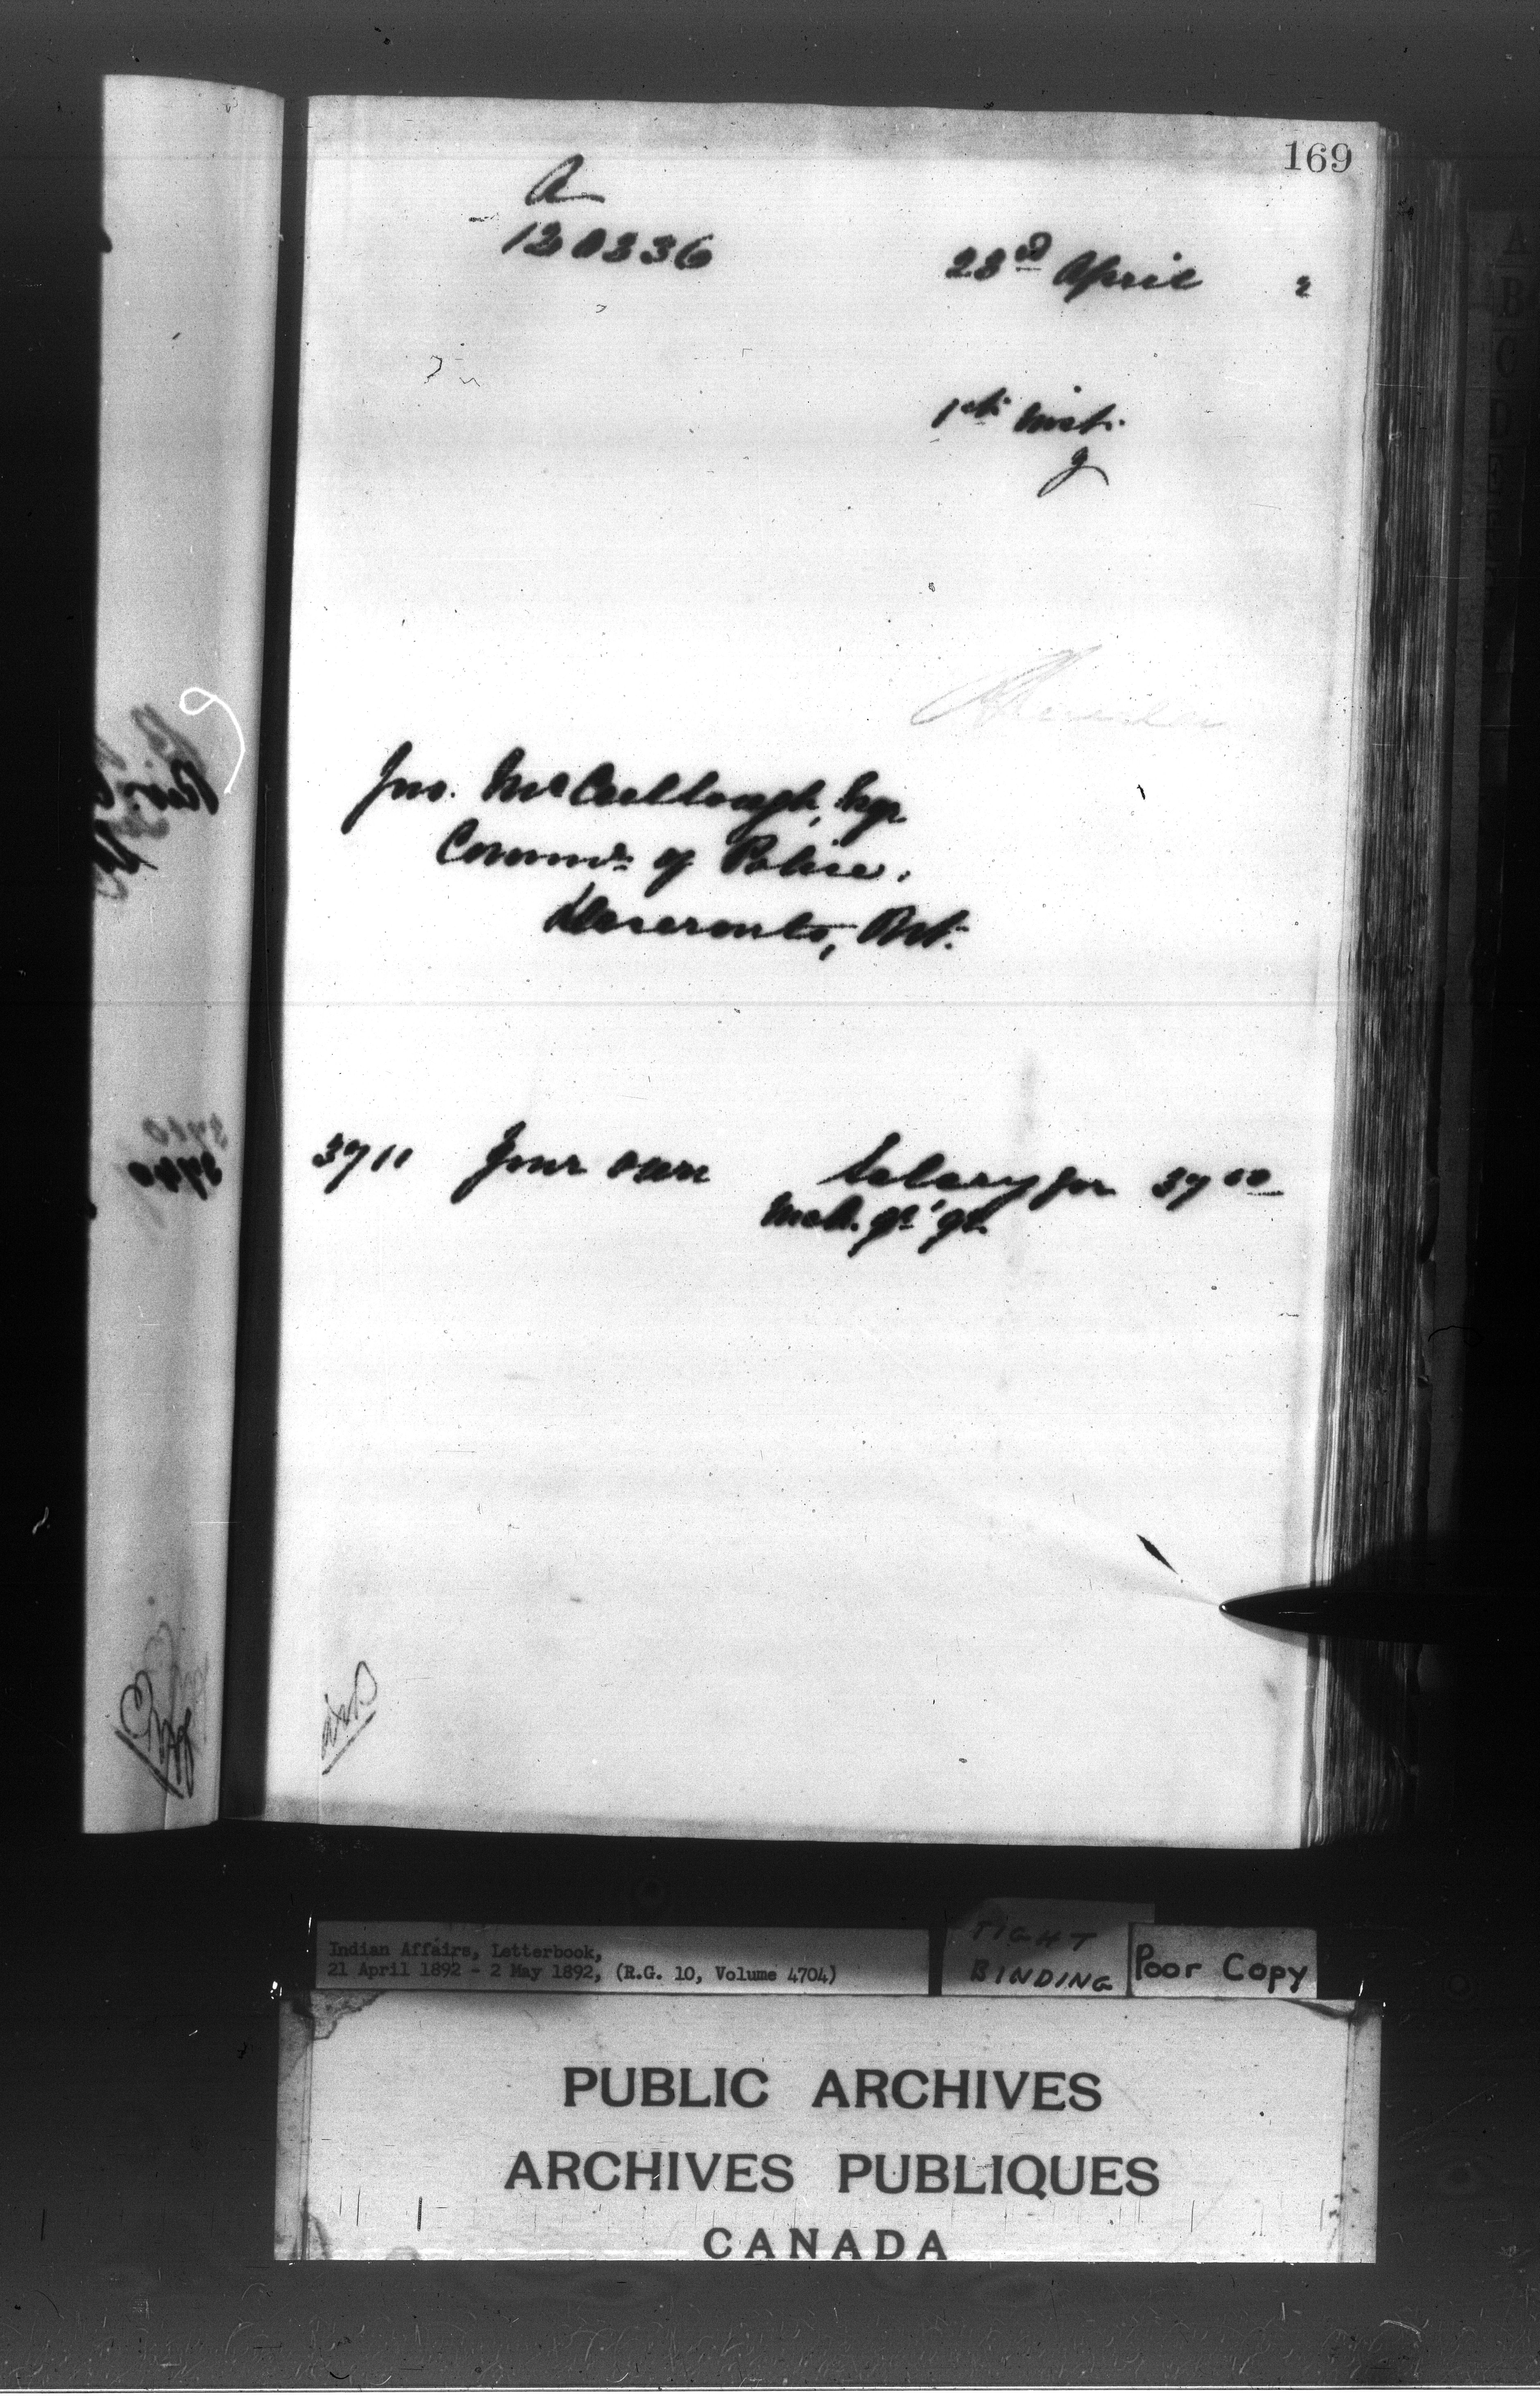 169
A
120336
23rd April 2
1st inst.
Jno. McCullough, Esqr
Commr of Police.
Deseronto, Ont.
3711 Your own Salary for 37 00
Mch. qr '92.
Indian Affairs, Letterbook,
21 April 1892 - 2 May 1892, (R.G. 10, Volume 4704)
TIGHT
BINDING
Poor Copy
PUBLIC ARCHIVES
ARCHIVES PUBLIQUES
CANADA